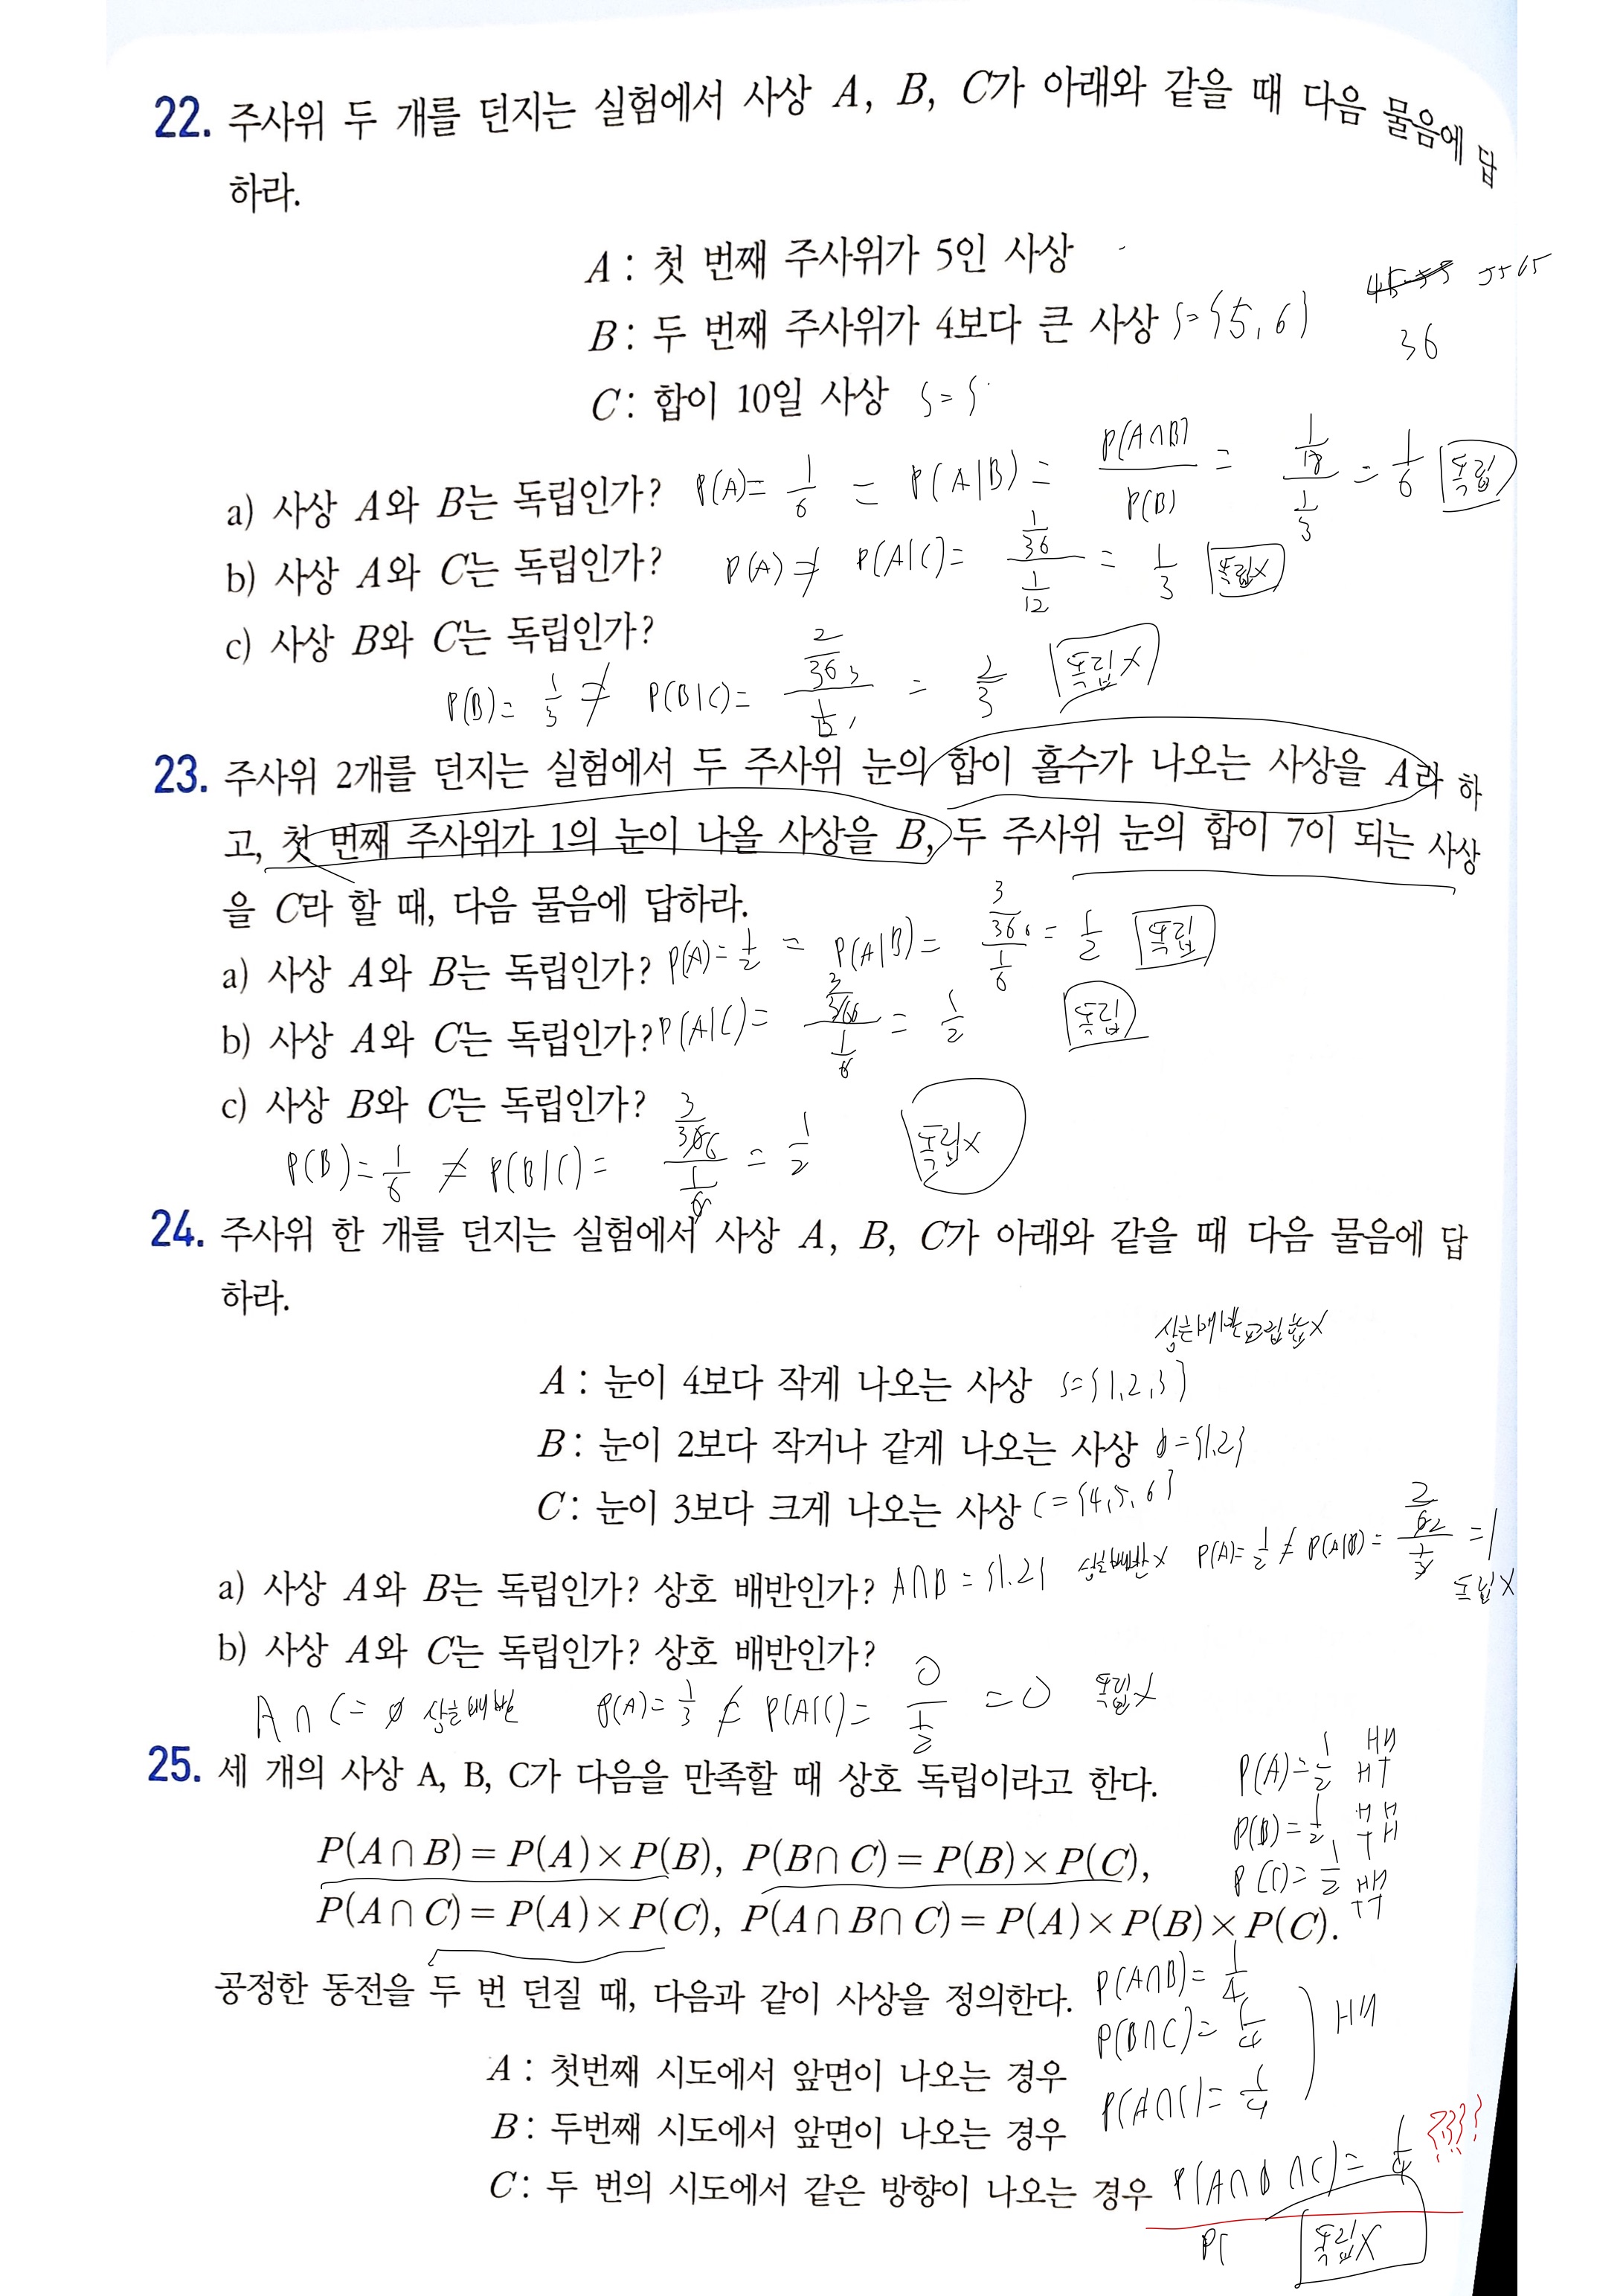 22. 주사위 두 개를 던지는 실험에서 사상 A, B, C가 아래와 같을 때 다음 물음에 답
하라.
A : 첫 번째 주사위가 5인 사상
B : 두 번째 주사위가 4보다 큰 사상 S={5, 6}
36
C : 합이 10일 사상 S= {
a) 사상 A와 B는 독립인가? P(A)= 1/6 = P(A|B) = P(A∩B)/P(B) = 1/18 / 1/3 = 1/6 독립
b) 사상 A와 C는 독립인가? P(A) ≠ P(A|C)= 1/36 / 1/12 = 1/3 독립X
c) 사상 B와 C는 독립인가?
P(B)= 1/3 ≠ P(B|C)= 2/36 / 1/12 = 2/3 독립X
23. 주사위 2개를 던지는 실험에서 두 주사위 눈의 합이 홀수가 나오는 사상을 A라 하
고, 첫 번째 주사위가 1의 눈이 나올 사상을 B, 두 주사위 눈의 합이 7이 되는 사상
을 C라 할 때, 다음 물음에 답하라.
a) 사상 A와 B는 독립인가? P(A)= 1/2 = P(A|B)= 3/36 / 1/6 = 1/2 독립
b) 사상 A와 C는 독립인가? P(A|C)= 3/36 / 1/6 = 1/2 독립
c) 사상 B와 C는 독립인가?
P(B)= 1/6 ≠ P(B|C)= 3/36 / 1/6 = 1/2 독립X
24. 주사위 한 개를 던지는 실험에서 사상 A, B, C가 아래와 같을 때 다음 물음에 답
하라.
A : 눈이 4보다 작게 나오는 사상 S={1,2,3}
B : 눈이 2보다 작거나 같게 나오는 사상 B={1,2}
C : 눈이 3보다 크게 나오는 사상 C={4,5,6}
a) 사상 A와 B는 독립인가? 상호 배반인가? A∩B = {1,2} 상호배반X P(A)= 1/2 ≠ P(A|B)= 2/6 / 1/3 =1 독립X
b) 사상 A와 C는 독립인가? 상호 배반인가?
A∩C=∅ 상호배반 P(A)= 1/3 ≠ P(A|C)= 0 / 1/2 =0 독립X
25. 세 개의 사상 A, B, C가 다음을 만족할 때 상호 독립이라고 한다.
P(A)= 1/2 HH HT
P(B)= 1/2 HH TH
P(C)= 1/2 HH TT
P(A∩B) = P(A)×P(B), P(B∩C) = P(B)×P(C),
P(A∩C) = P(A)×P(C), P(A∩B∩C) = P(A)×P(B)×P(C).
공정한 동전을 두 번 던질 때, 다음과 같이 사상을 정의한다.
P(A∩B)= 1/4
P(B∩C)= 1/4 HH
P(A∩C)= 1/4
A : 첫번째 시도에서 앞면이 나오는 경우
B : 두번째 시도에서 앞면이 나오는 경우
C : 두 번의 시도에서 같은 방향이 나오는 경우 P(A∩B∩C)= 1/4 ????
P( 독립X